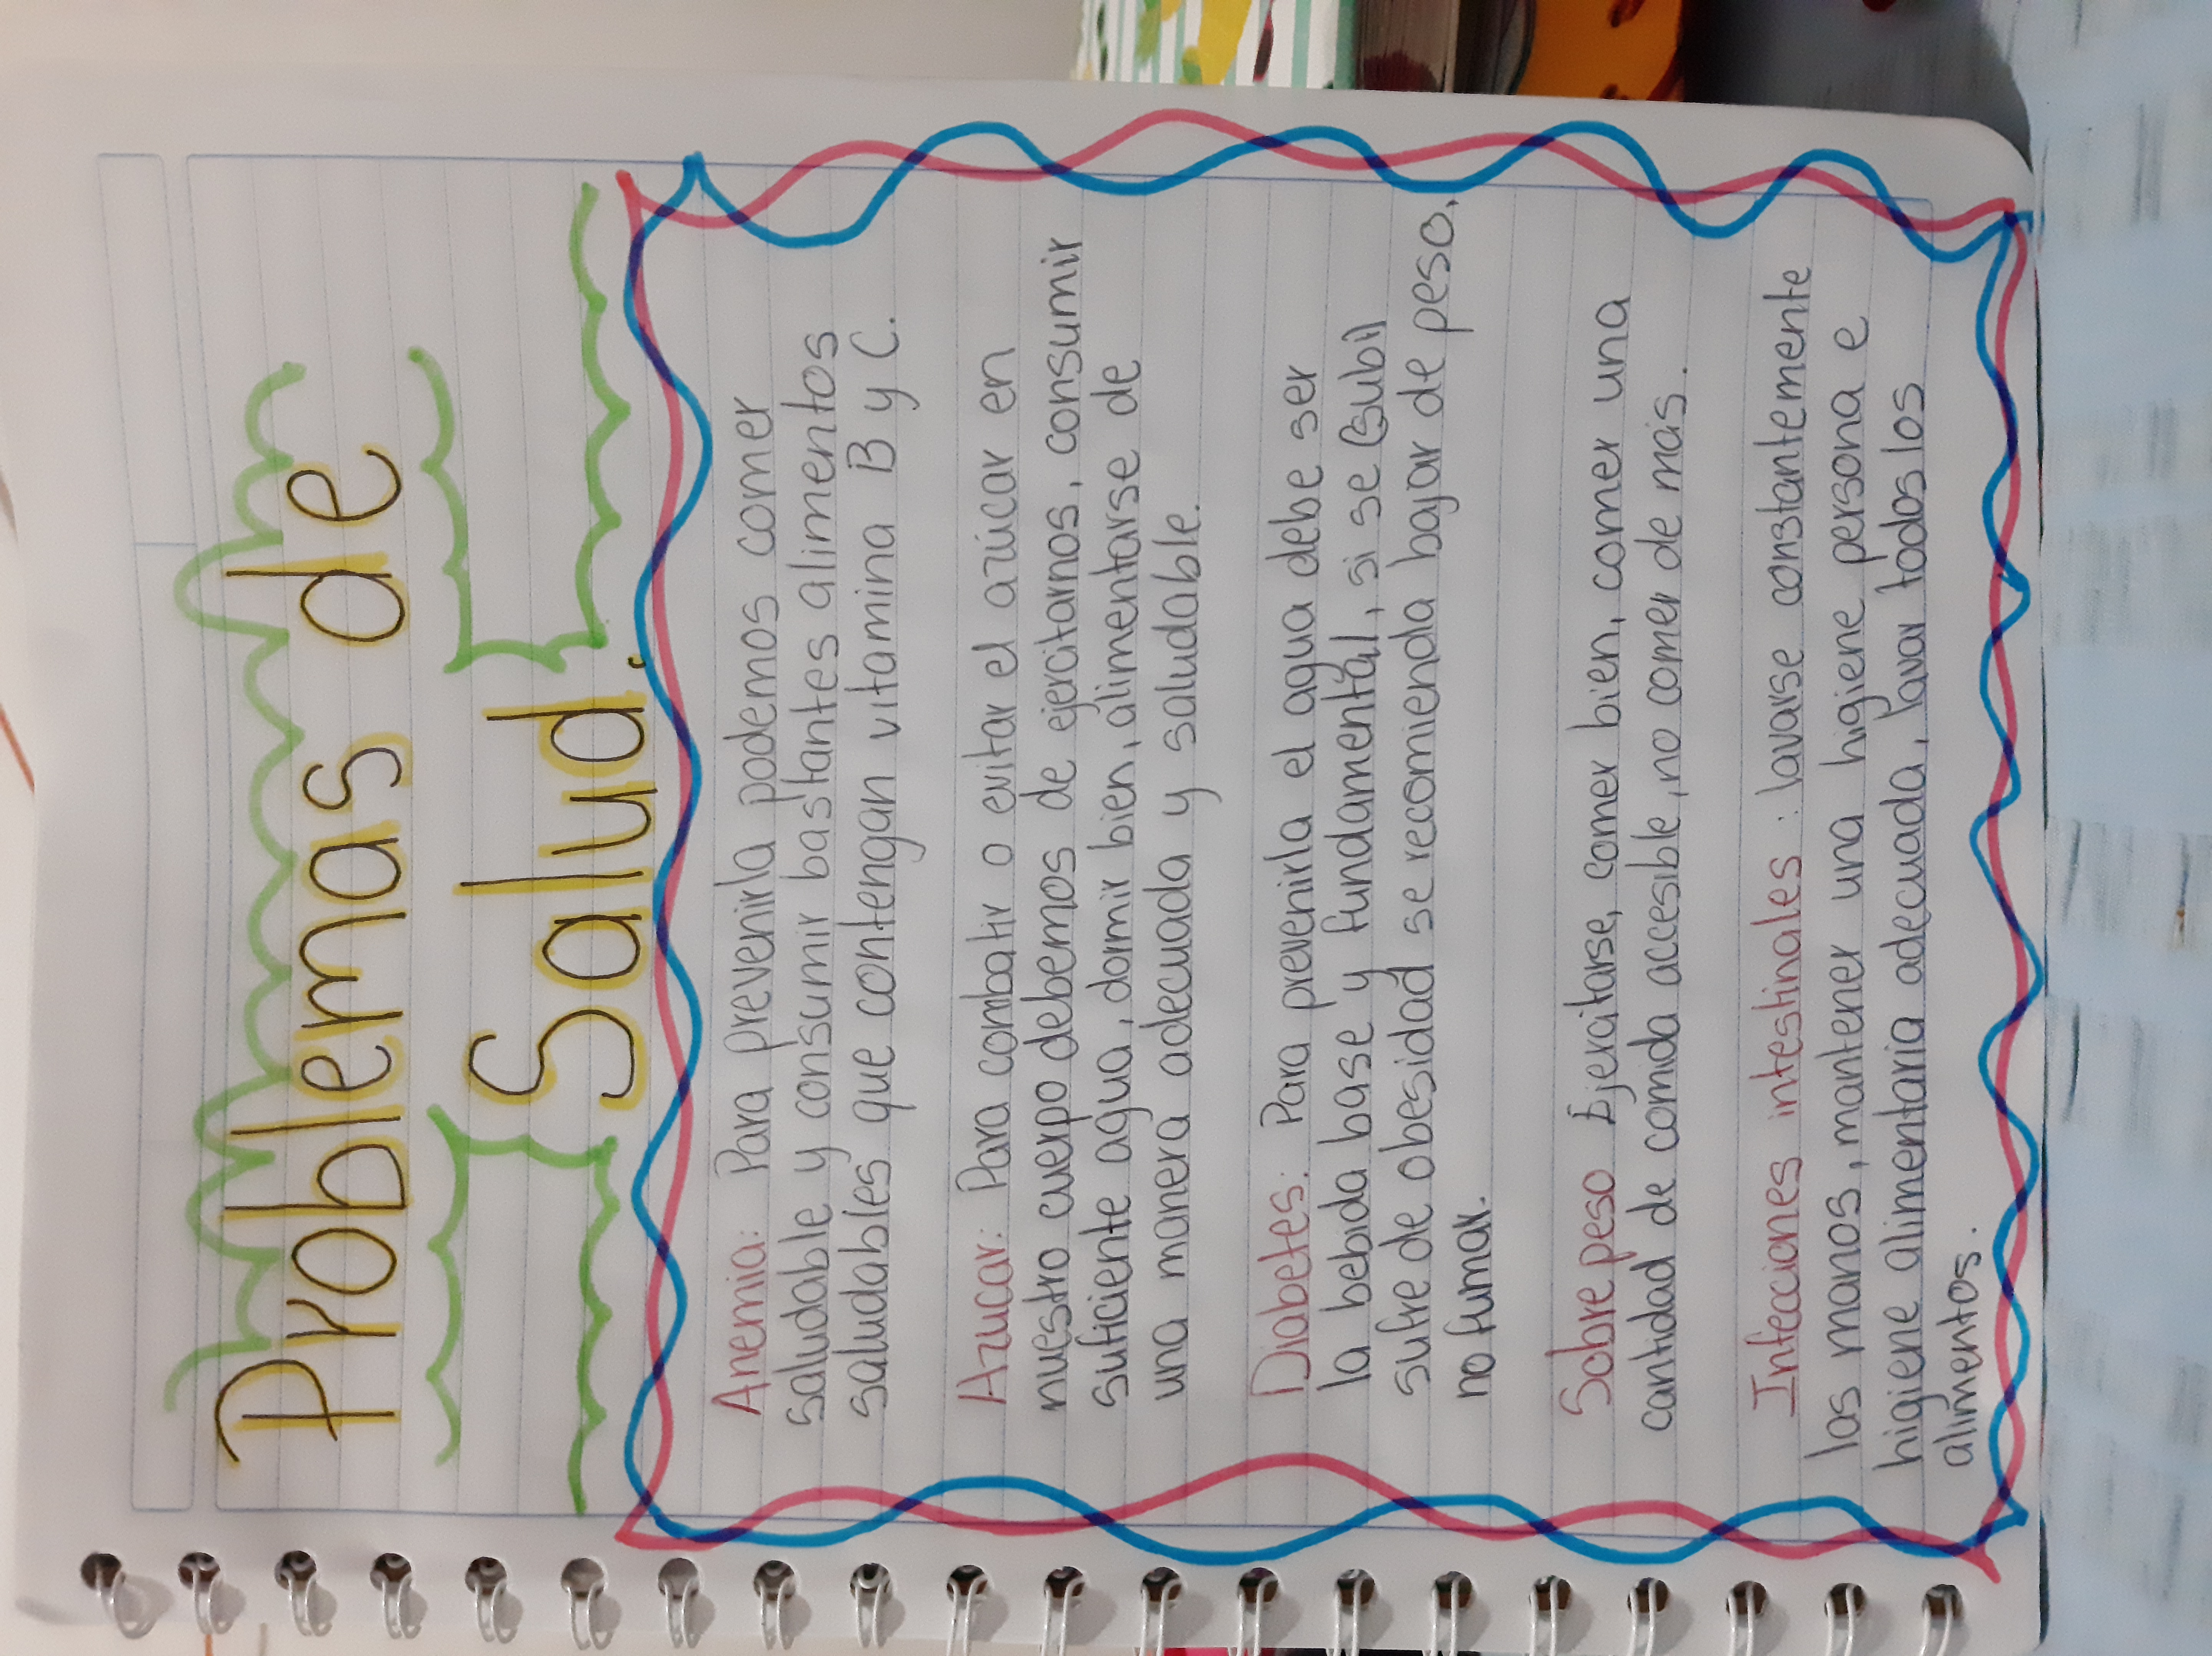 Problemas de
Salud.
Anemia: Para prevenirla podemos comer
saludable y consumir bastantes alimentos
saludables que contengan vitamina B y C.
Azucar: Para combatir o evitar el azúcar en
nuestro cuerpo debemos de ejercitarnos, consumir
suficiente agua, dormir bien, alimentarse de
una manera adecuada y saludable.
Diabetes: Para prevenirla el agua debe ser
la bebida base y fundamental, si se (subi)
sufre de obesidad se recomienda bajar de peso,
no fumar.
Sobre peso Ejercitarse, comer bien, comer una
cantidad de comida accesible, no comer de más.
Infecciones intestinales: lavarse constantemente
las manos, mantener una higiene persona e
higiene alimentaria adecuada, lavar todos los
alimentos.